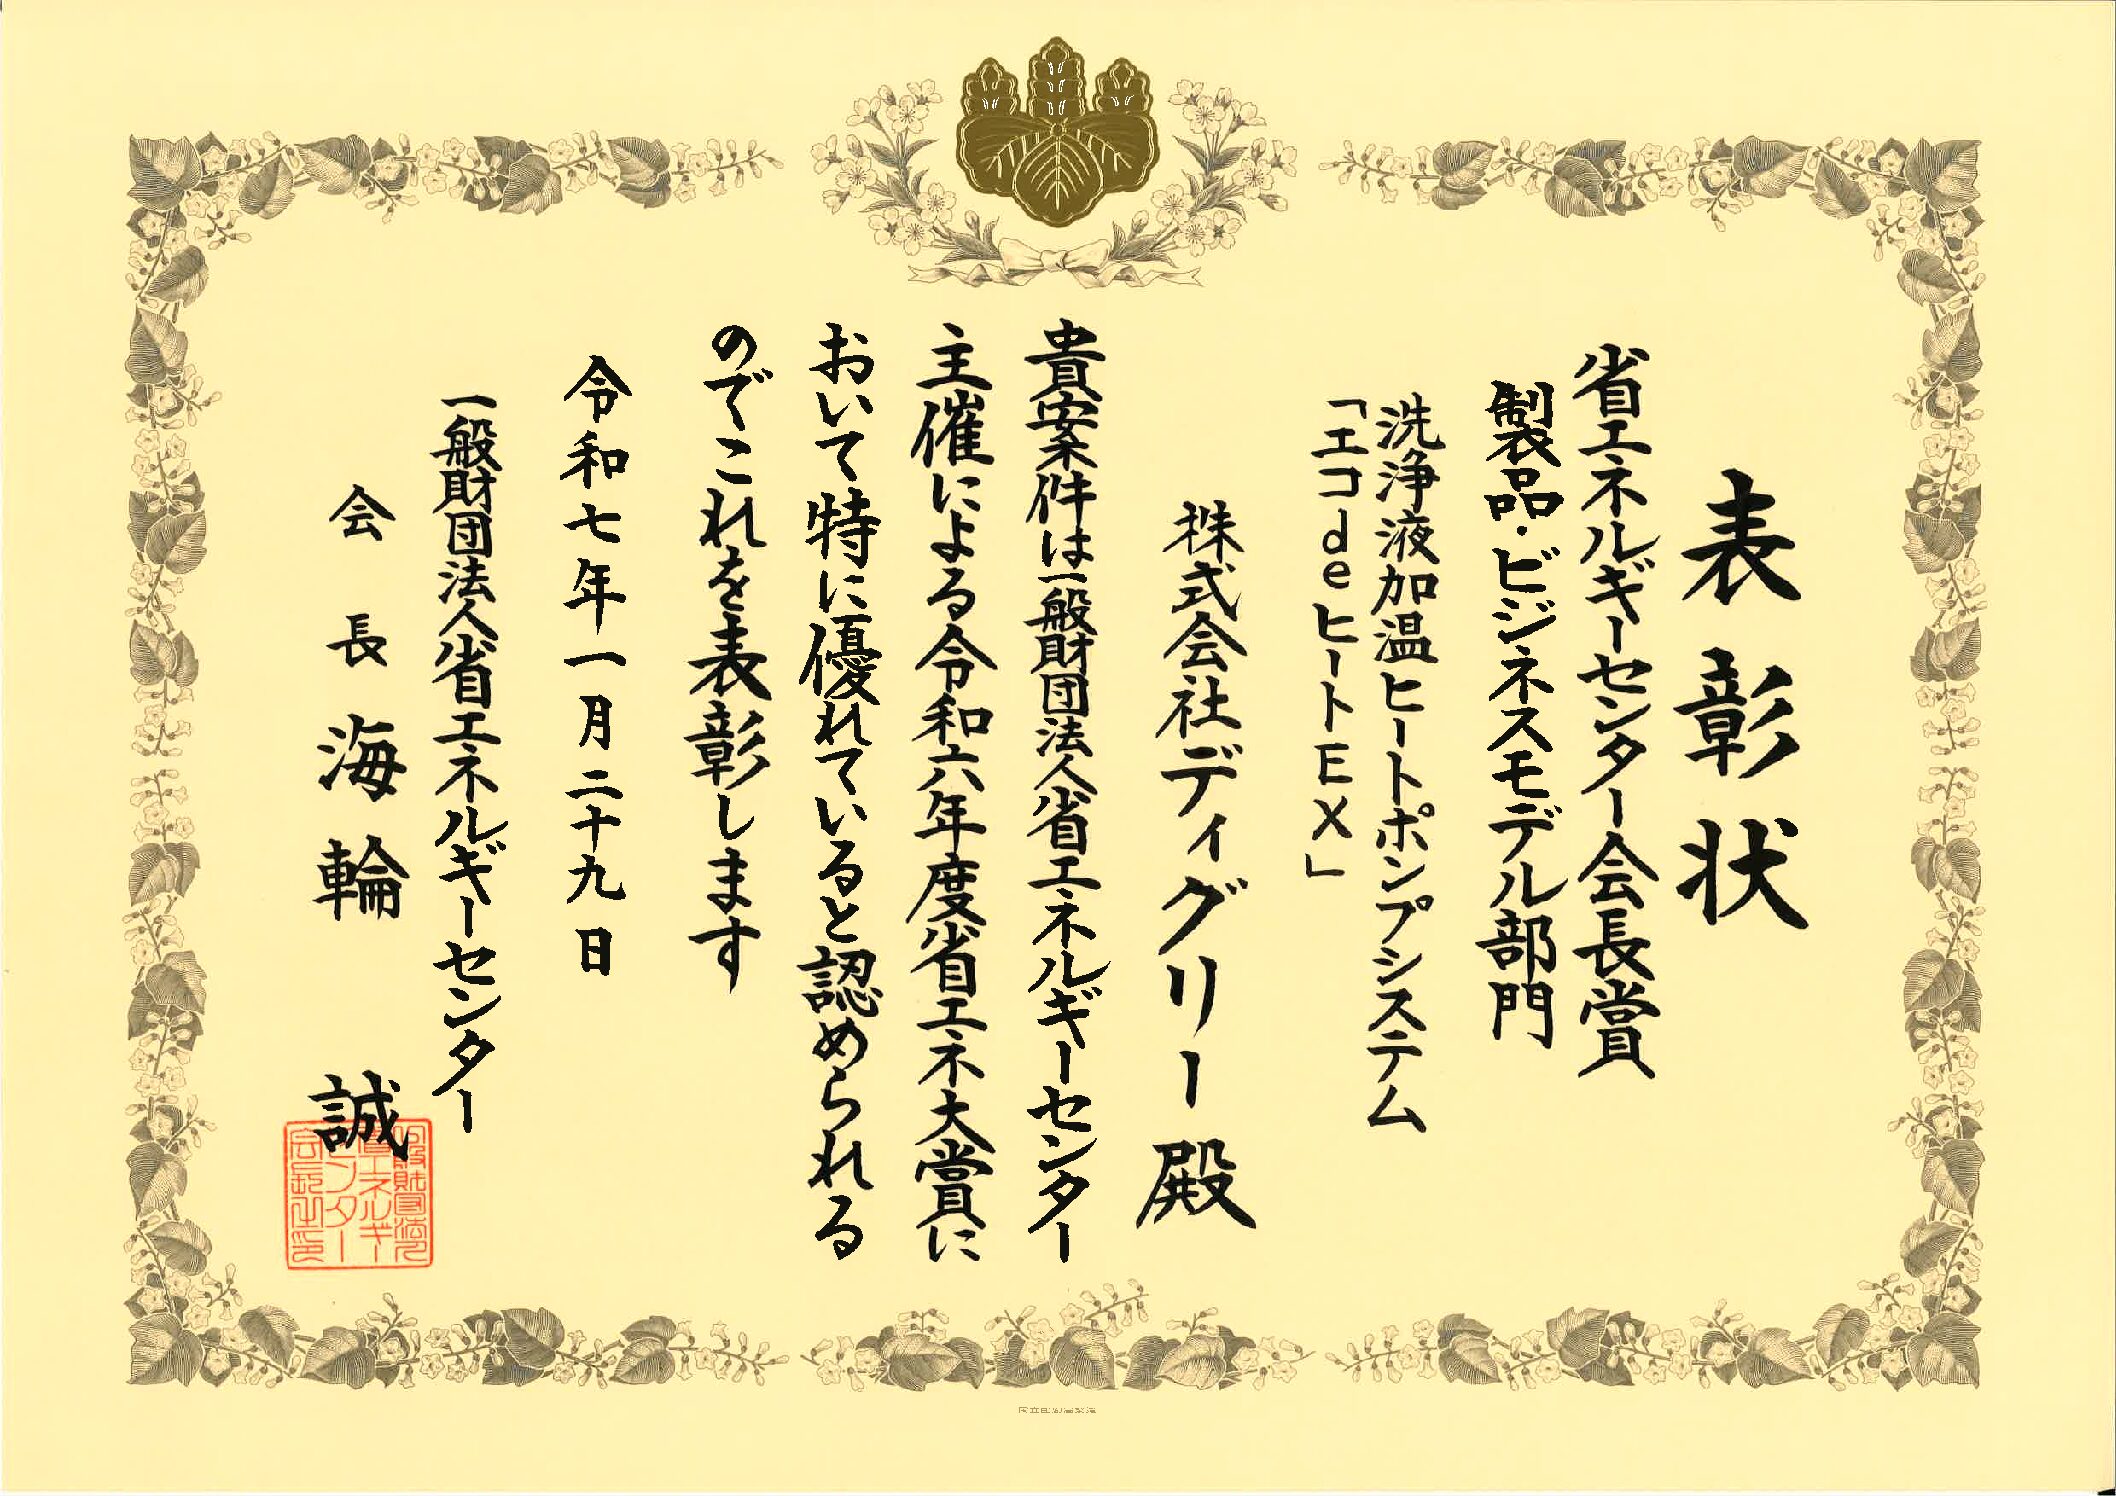 表彰状
省エネルギーセンター会長賞
製品・ビジネスモデル部門
洗浄液加温ヒートポンプシステム
「エコdeヒートEX」
株式会社ディグリー殿
貴案件は一般財団法人省エネルギーセンター
主催による令和六年度省エネ大賞に
おいて特に優れていると認められる
のでこれを表彰します
令和七年一月二十九日
一般財団法人省エネルギーセンター
会長海輪誠
一般財団法人
省エネルギー
センター
会長之印